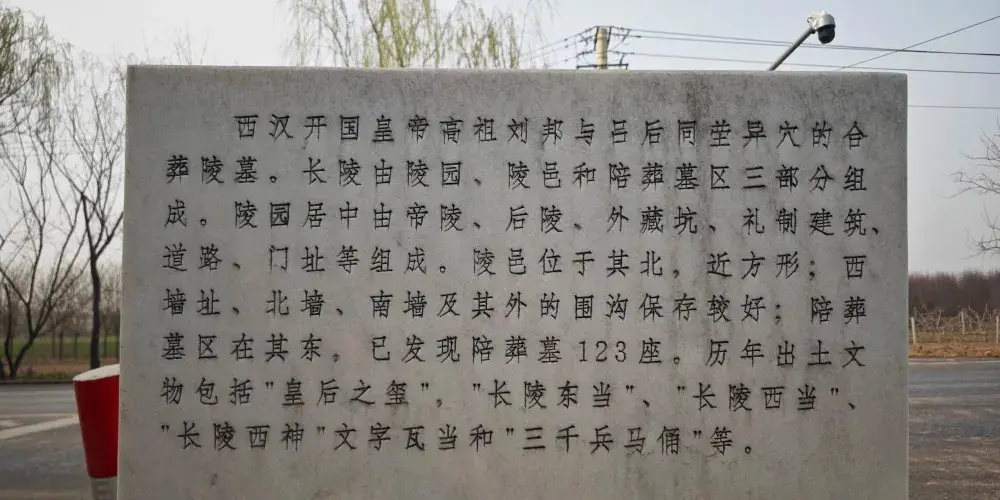 西汉开国皇帝高祖刘邦与吕后同茔异穴的合
葬陵墓。长陵由陵园、陵邑和陪葬墓区三部分组
成。陵园居中由帝陵、后陵、外藏坑、礼制建筑、
道路、门址等组成。陵邑位于其北，近方形；西
墙址、北墙、南墙及其外的围沟保存较好；陪葬
墓区在其东。已发现陪葬墓123座。历年出土文
物包括"皇后之玺"，"长陵东当"、"长陵西当"、
"长陵西神"文字瓦当和"三千兵马俑"等。